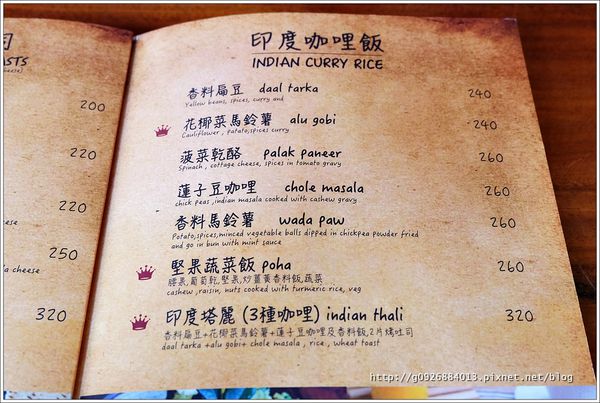 ASTS
cheese)
200
220
220
a cheese
250
320
印度咖哩飯
INDIAN CURRY RICE
香料扁豆 daal tarka 240
Yellow beans, spices, curry and
花椰菜馬鈴薯 alu gobi 240
Cauliflower , potato,spices curry
菠菜乾酪 palak paneer 260
Spinach , cottage cheese, spices in tomato gravy
蓮子豆咖哩 chole masala 260
chick peas ,indian masala cooked with cashew gravy
香料馬鈴薯 wada paw 260
Potato,spices,minced vegetable balls dipped in chickpea powder fried
and go in bun with mint sauce
堅果蔬菜飯 poha 260
腰果,葡萄乾,堅果,炒薑黃香料飯,蔬菜
cashew ,raisin, nuts cooked with turmeric rice, veg
印度塔麗 (3種咖哩) indian thali 320
香料扁豆+花椰菜馬鈴薯+蓮子豆咖哩及香料飯,2片烤吐司
daal tarka +alu gobi+ chole masala , rice , wheat toast
http://g0926884013.pixnet.net/blog